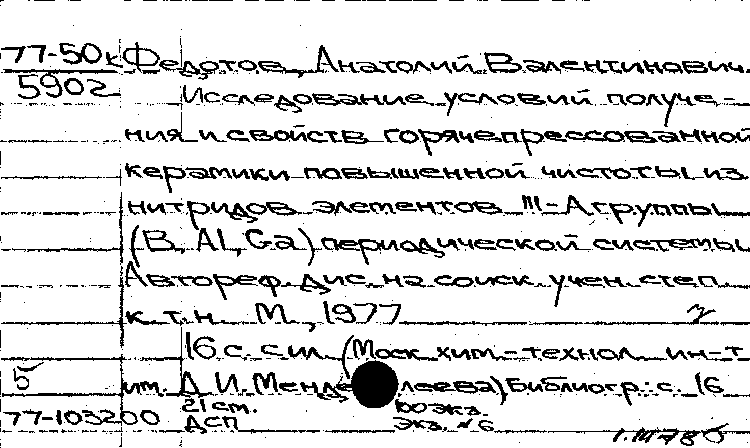 77-50к Федотов, Анатолий Валентинович.
5902
Исследование условий получе-
ния и свойств горячепрессованной
керамики повышенной чистоты из
нитридов элементов III-А группы
(B, Al, Ga) периодической системы
Автореф. дис. на соиск. учен. степ.
к. т. н. М., 1977
16 с. с ил. (Моск. хим.-технол. ин-т
5 им. Д. И. Менделеева) Библиогр.: с. 16
77-103200 21 ст. 100 экз.
ДСП экз. №6